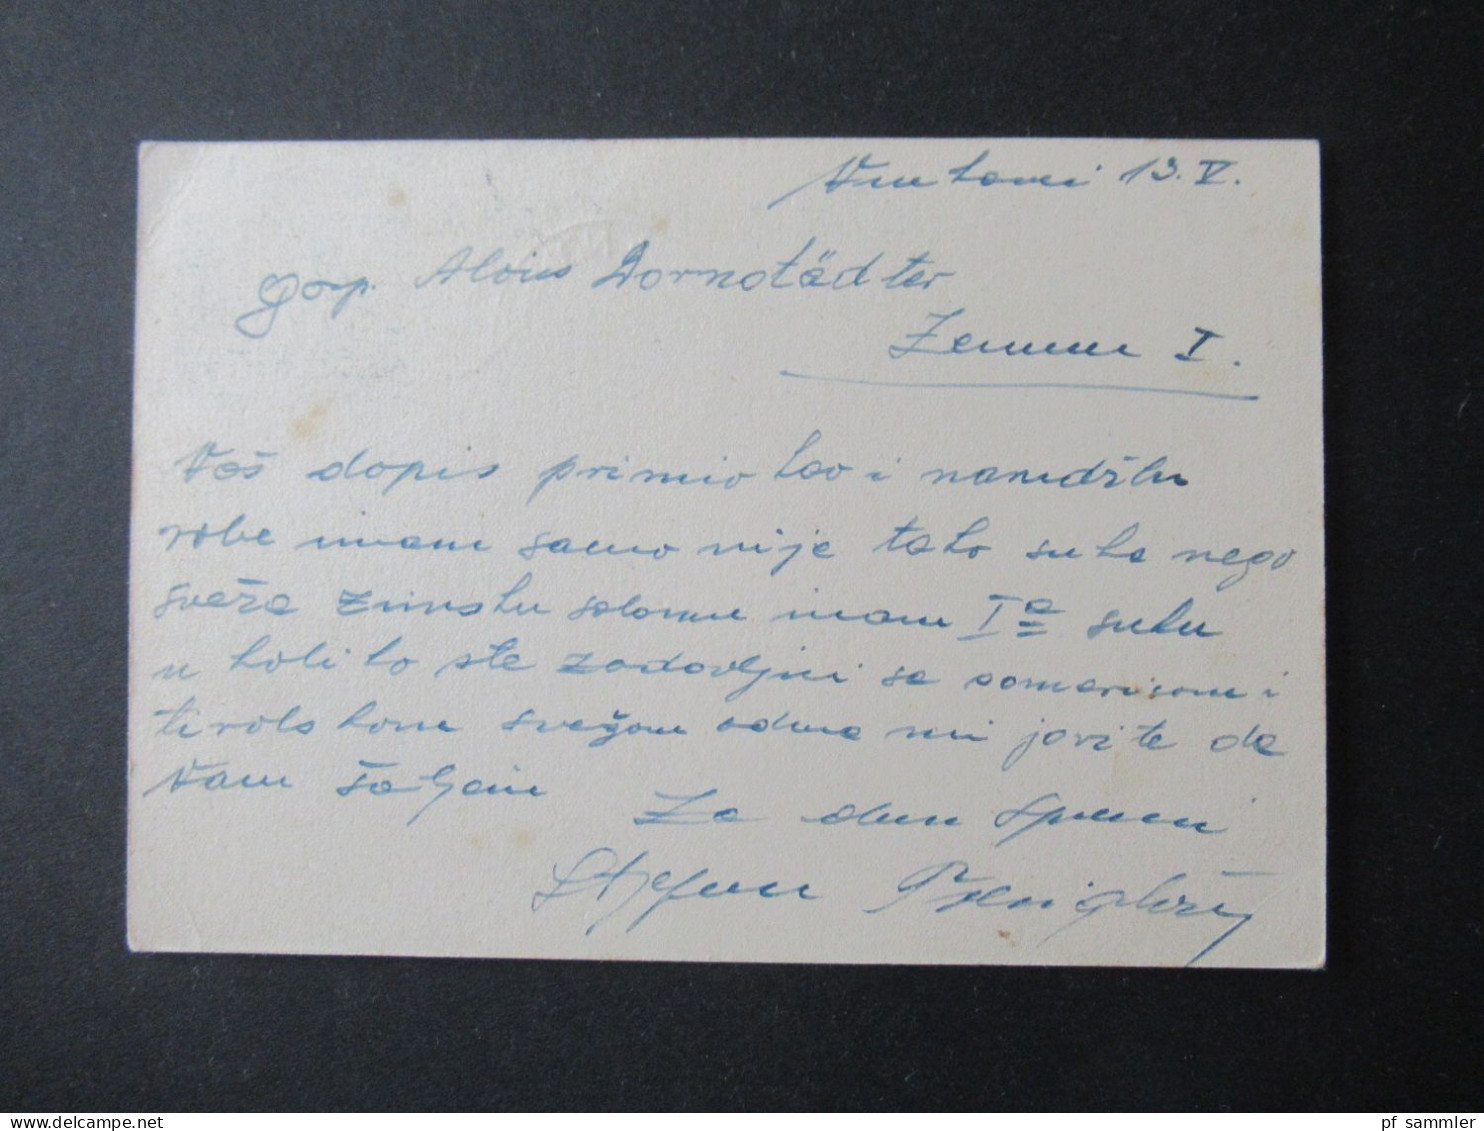 Vinkovci 13. V.
Gosp. Alois Dornstädter
Zemun I.
Vaš dopis primio kao i narudžbu
robe imam samo nije tako suha nego
sveža zimsku salamu imam Ia suhu
u koliko ste zadovoljni sa somerisom i
tirolskom svežom odma mi javite da
Vam šaljem
Za dem spreman
Stjepan
pf sammler